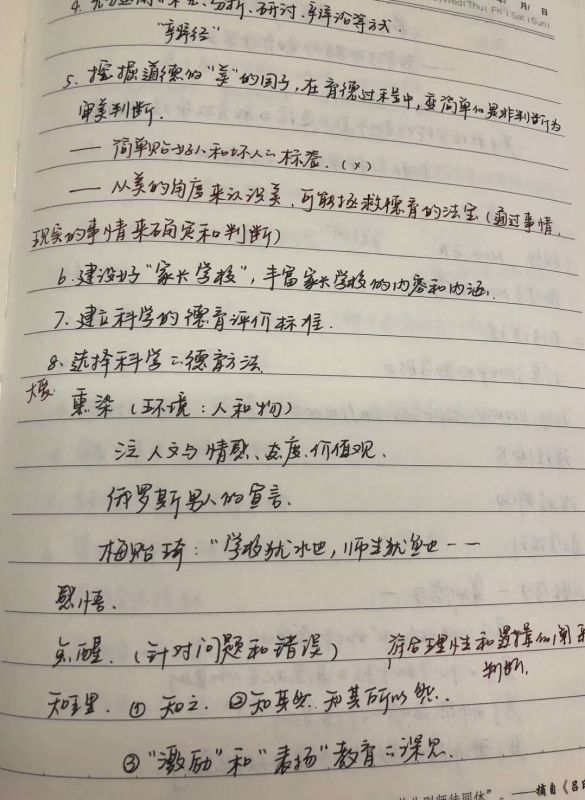 年 /月/ 日
Wed|Thu|Fri|Sat|Sun
4. 分析、研讨、辩论等方式.
"辩经"
5. 挖掘道德的"美"的因子, 在育德过程中, 变简单的是非判断为
审美判断.
— 简单贴好人和坏人二标签. (×)
— 从美的角度来认识美, 可能拯救德育的法宝 (通过事情,
现实的事情来确实和判断)
6. 建设好"家长学校", 丰富家长学校的内容和内涵.
7. 建立科学的德育评价标准.
8. 选择科学二德育方法
熏染 (环境: 人和物)
注 人文与情感、态度、价值观.
俄罗斯男人的宣言.
梅贻琦: "学校犹水也, 师生犹鱼也 — —
感悟.
点醒. (针对问题和错误) 符合理性和逻辑的
判断.
知理. ① 知之. ② 知其然. 知其所以然.
③ "激励"和"表扬"教育二误思.
师徒同体". ——摘自《吕